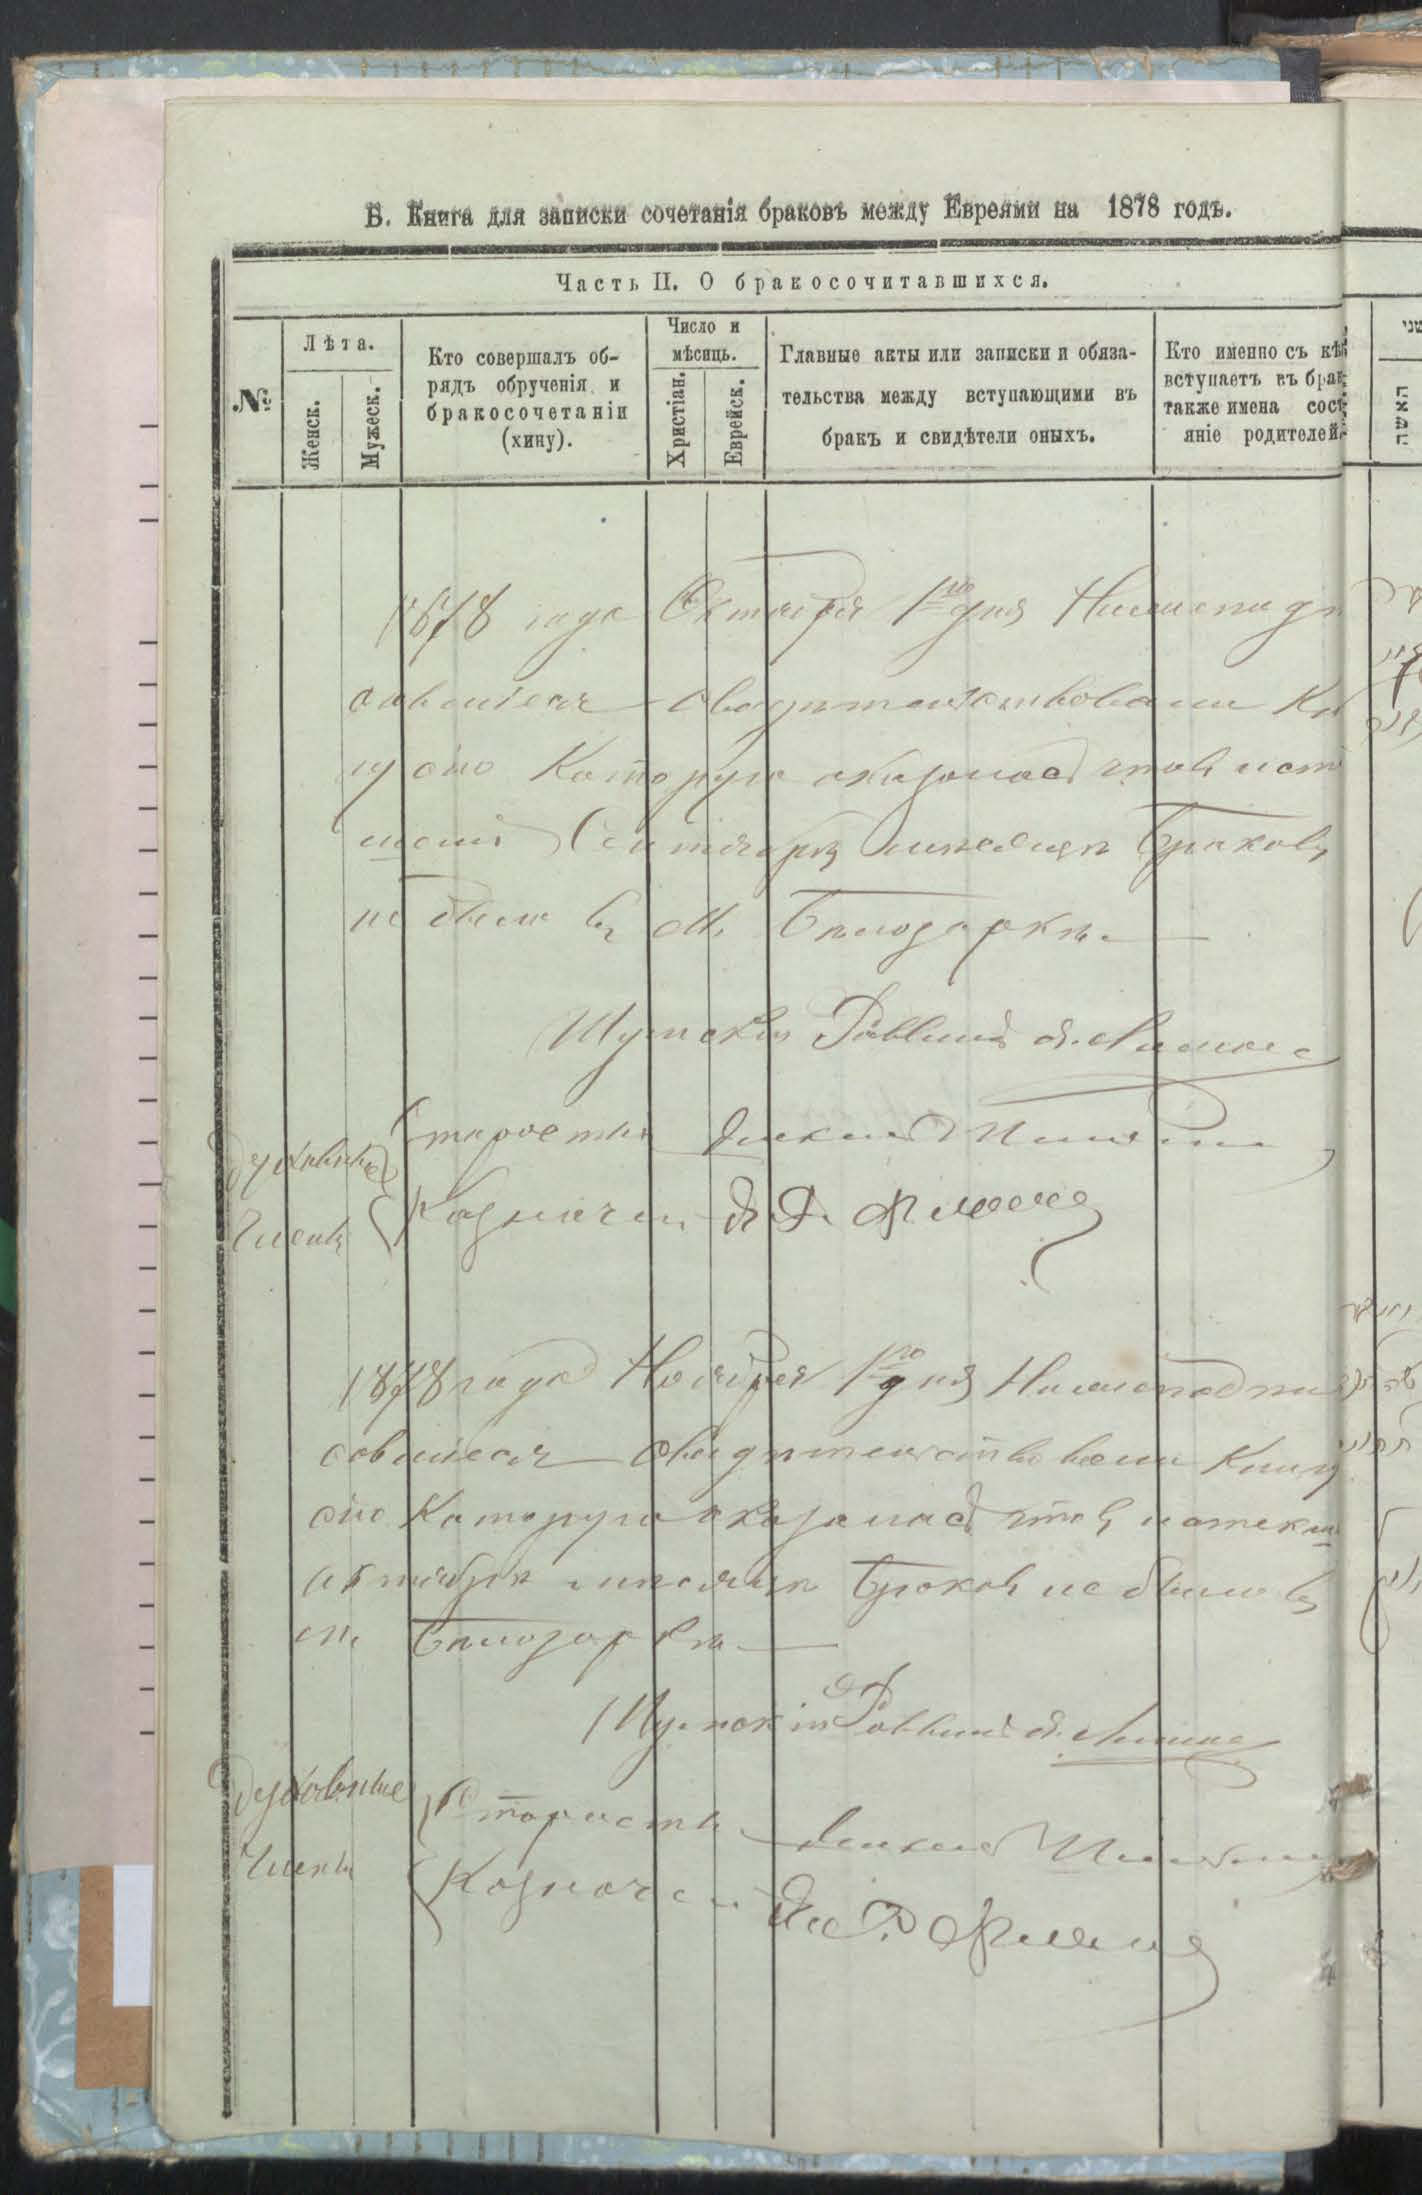 Б. Книга для записки сочетанія браковъ между Евреями на 1878 годъ.
Часть II. О бракосочитавшихся.
№
Лѣта.
Женск.
Мужеск.
Кто совершалъ об-
рядъ обрученія и
бракосочетаніи
(хину).
Число и
мѣсяцъ.
Христіан.
Еврейск.
Главные акты или записки и обяза-
тельства между вступающими въ
бракъ и свидѣтели оныхъ.
Кто именно съ кѣ
вступаетъ въ бра
также имена сос
яніе родителей
האשה
1878 года Октября 1го дня Нижеподп
савшіеся свидѣтельствовали Кн
гу сію Которую оказалось что въ исте
шемъ Сентябрѣ мѣсяцѣ Браковъ
не было въ М. Бѣлозоркѣ
Шумскій Раввинъ
Духовные
Члены
Староста
Казначей
1878 года Ноября 1го дня Нижеподпи
савшіеся свидѣтельствовали Книгу
сію Которую оказалось что въ истекш
октябрѣ мѣсяцѣ Браковъ не было въ
м. Бѣлозоркѣ
Шумскій Раввинъ
Духовные
Члены
Староста
Казначей